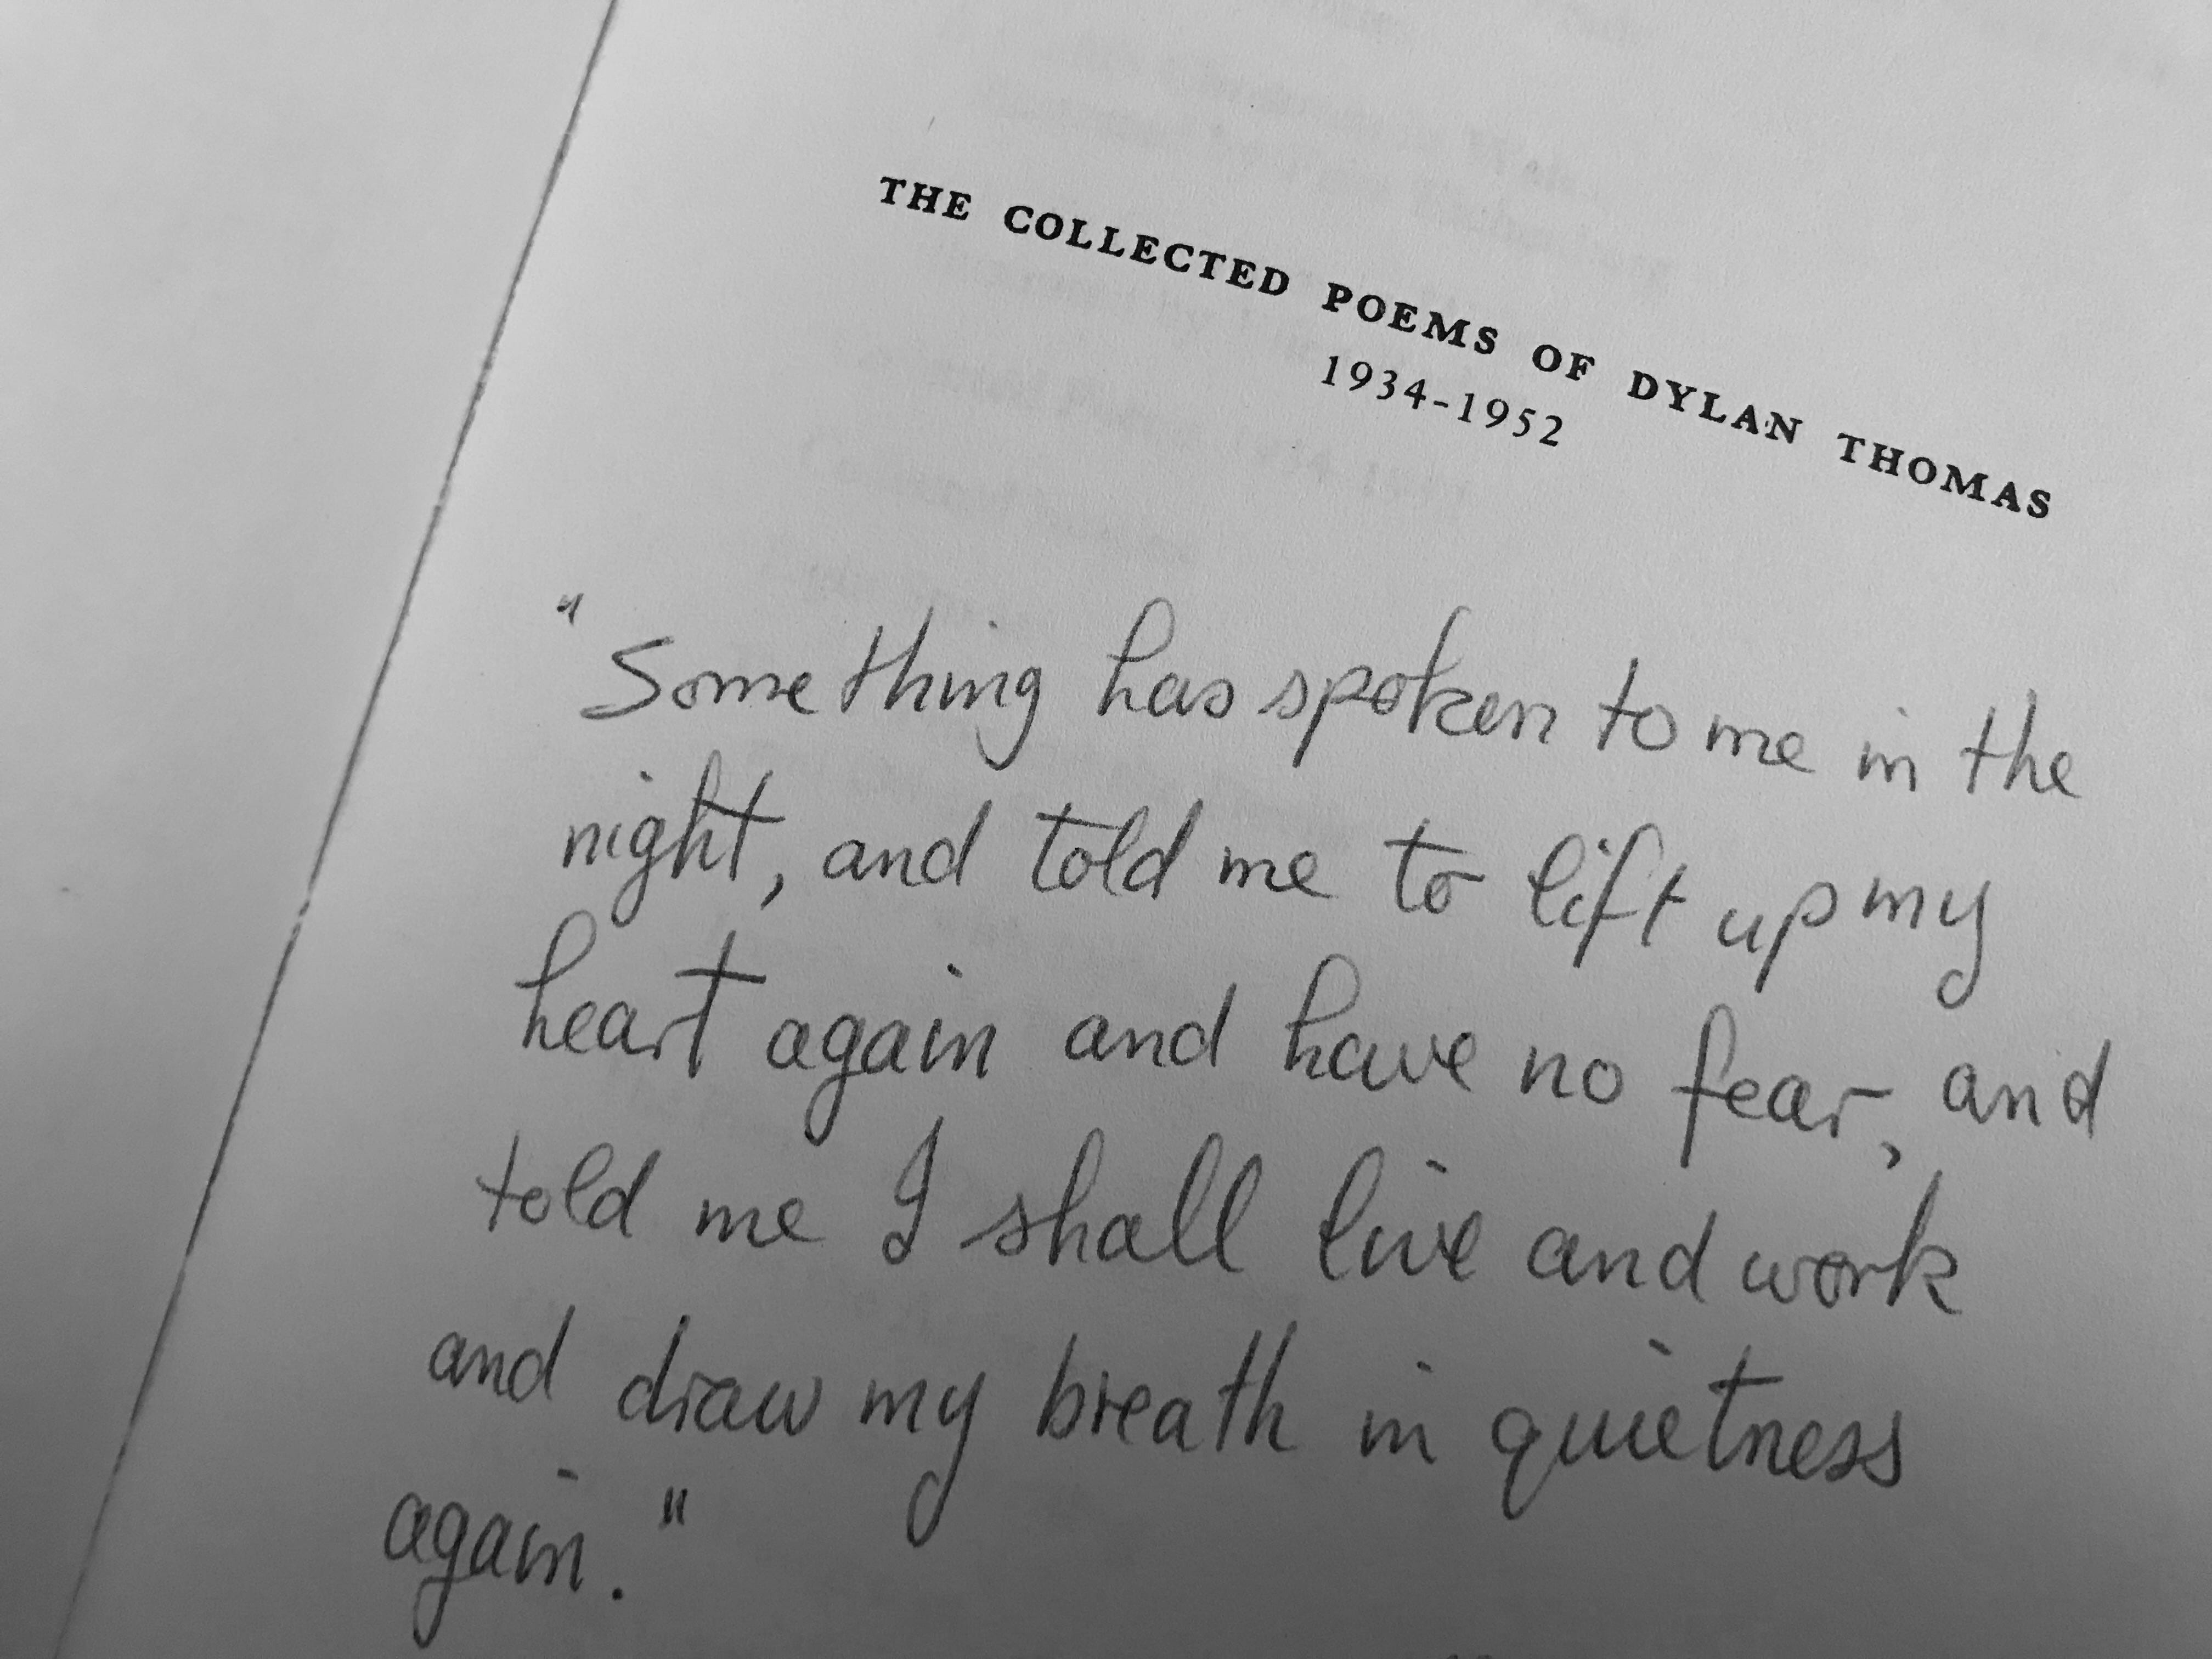 THE COLLECTED POEMS OF DYLAN THOMAS
1934-1952
"Something has spoken to me in the
night, and told me to lift up my
heart again and have no fear, and
told me I shall live and work
and draw my breath in quietness
again."